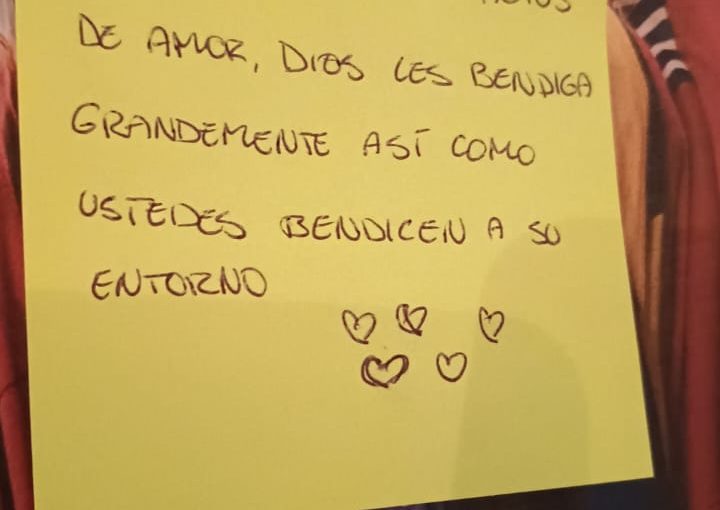 DE AMOR, DIOS LES BENDIGA
GRANDEMENTE ASÍ COMO
USTEDES BENDICEN A SU
ENTORNO